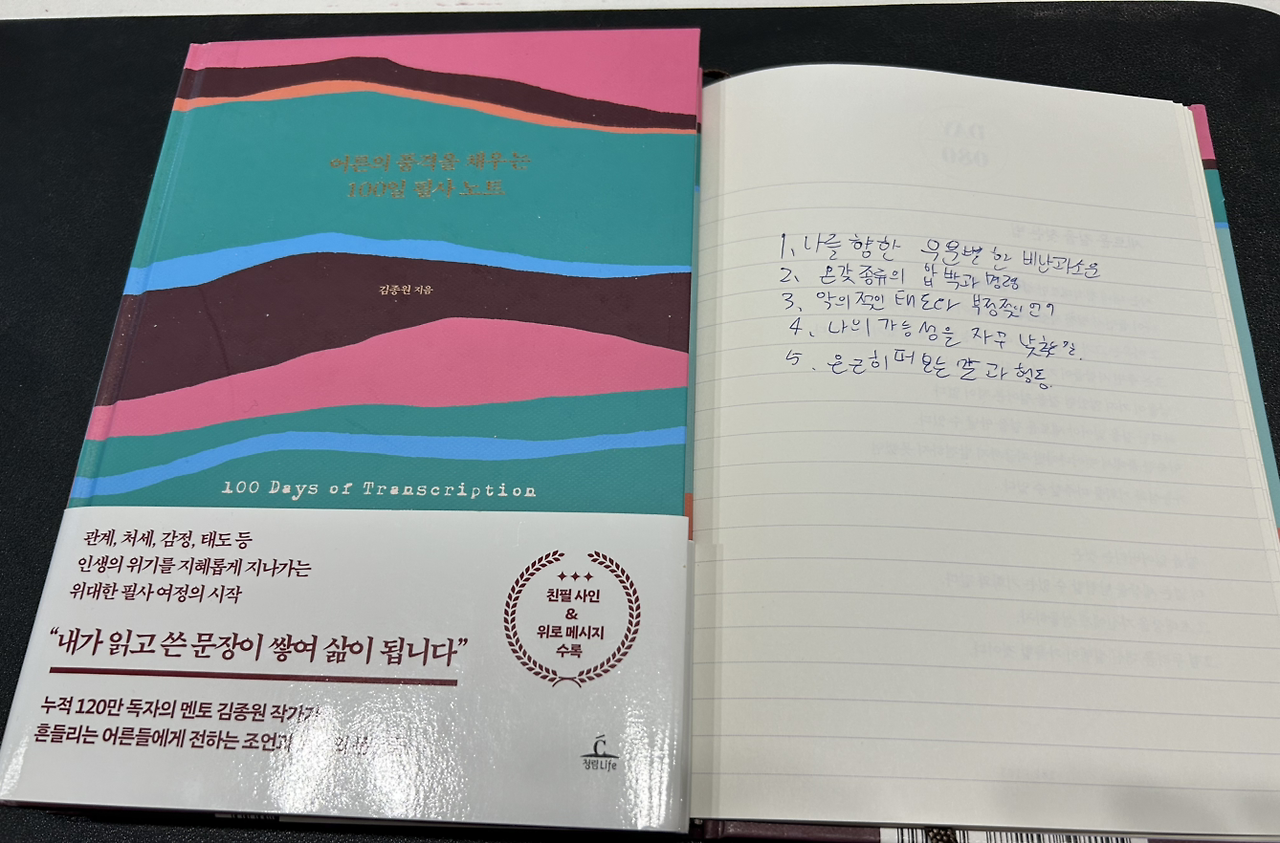 어른의 품격을 채우는
100일 필사 노트
김종원 지음
100 Days of Transcription
관계, 처세, 감정, 태도 등
인생의 위기를 지혜롭게 지나가는
위대한 필사 여정의 시작
“내가 읽고 쓴 문장이 쌓여 삶이 됩니다”
누적 120만 독자의 멘토 김종원 작가가
흔들리는 어른들에게 전하는 조언과
친필 사인
&
위로 메시지
수록
청림Life
DAY
080
1, 나를 향한 무분별한 비난과소문
2、온갖 종류의 압박과 명령
3, 악의적인 태도와 부정적인 언어
4, 나의 가능성을 자꾸 낮출 말.
5. 은근히 퍼 말과 행동